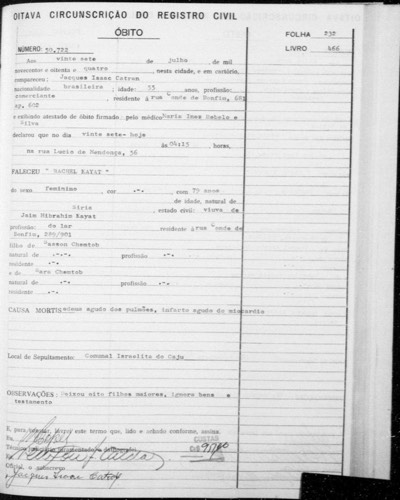 OITAVA CIRCUNSCRIÇÃO DO REGISTRO CIVIL
ÓBITO
FOLHA 232
NÚMERO: 50.722
LIVRO 466
Aos vinte sete de julho de mil
novecentos e oitenta e quatro, nesta cidade, e em cartório,
compareceu: Jacques Isaac Cotran
nacionalidade brasileira; idade: 55 anos, profissão:
comerciante, residente à rua Conde de Bonfim, 685
ap. 602
e exibindo atestado de óbito firmado pelo médico Maria Inez Rebelo e
Silva
declarou que no dia vinte sete- hoje
às 04:15 horas,
na rua Lucio de Mendonça, 56
FALECEU " RACHEL KAYAT "
do sexo Feminino, cor -"-, com 79 anos
de idade, natural de
Siria, estado civil: viuva de
Jaim Mibrahin Kayat
profissão: do lar residente à rua Conde de
Bonfim, 289/901
filho de Nassou Chemtob
natural de -"-"- profissão -"-
residente -"-
e de Sara Chemtob
natural de -"- profissão -"-
residente -"-
CAUSA MORTIS edema agudo dos pulmões, infarto agudo do miocardio
Local de Sepultamento: Comunal Israelita do Caju
OBSERVAÇÕES: Deixou oito filhos maiores, ignora bens e
testamento
E, para constar, lavrei este termo que, lido e achado conforme, assina.
Eu,
CUSTAS
Oficial, o subscrevo
Jacques Isaac Cotran